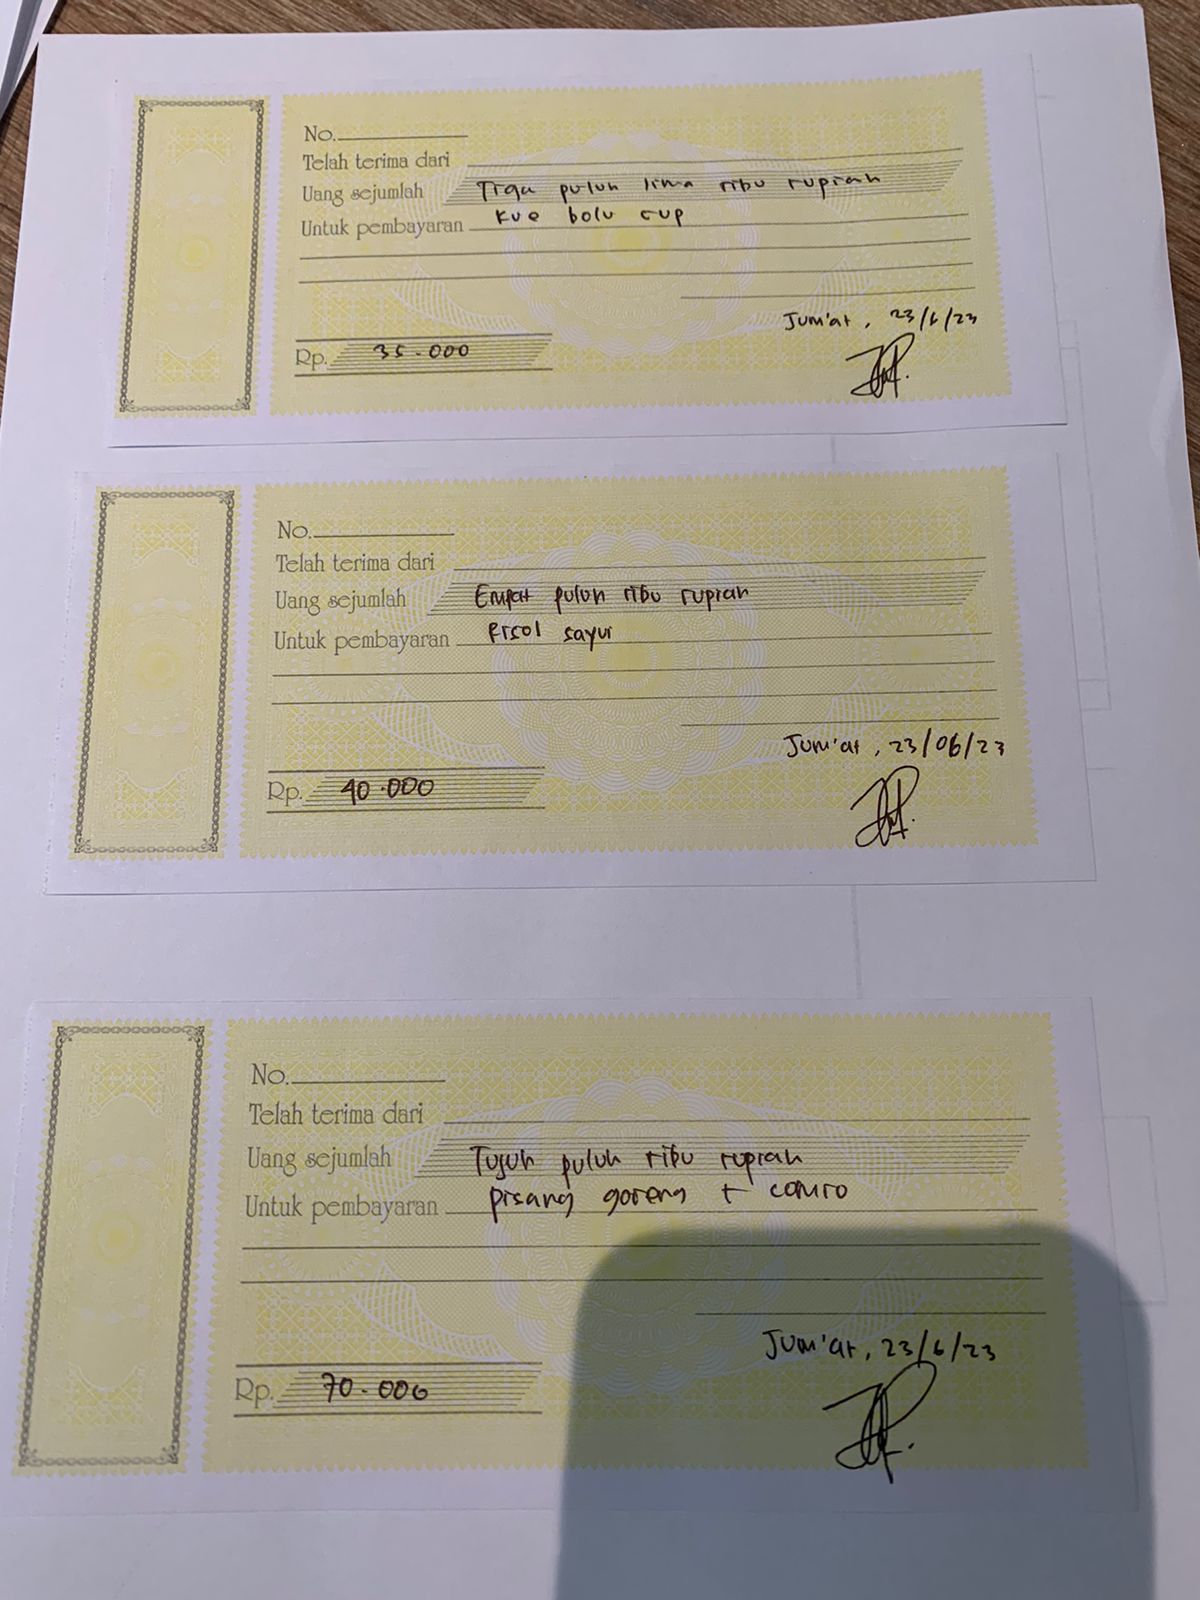 No.
Telah terima dari
Uang sejumlah Tiga puluh lima ribu rupiah
Untuk pembayaran Kue bolu cup
Jum'at, 23/6/23
Rp. 35.000
No.
Telah terima dari
Uang sejumlah Empat puluh ribu rupiah
Untuk pembayaran Risol sayur
Jum'at, 23/06/23
Rp. 40.000
No.
Telah terima dari
Uang sejumlah Tujuh puluh ribu rupiah
Untuk pembayaran pisang goreng + comro
Jum'at, 23/6/23
Rp. 70.000